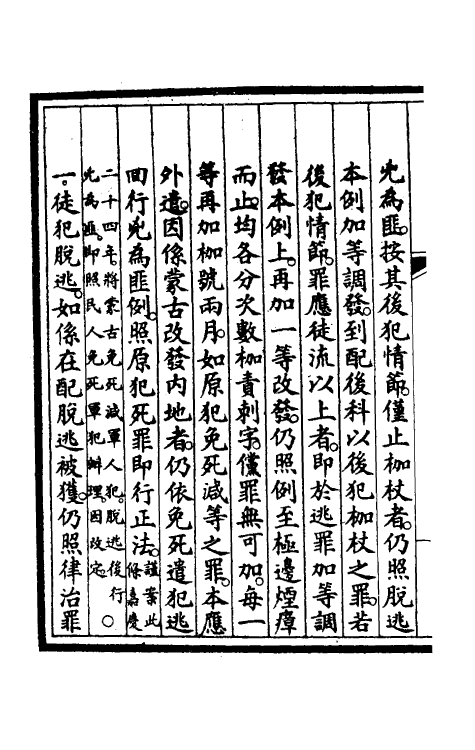 兇為匪。按其後犯情節。僅止枷杖者。仍照脫逃
本例加等調發。到配後科以後犯枷杖之罪。若
後犯情節。罪應徒流以上者。即於逃罪加等調
發本例上。再加一等改發。仍照例至極邊煙瘴
而止。均各分次數枷責刺字。儻罪無可加。每一
等再加枷號兩月。如原犯免死減等之罪。本應
外遣。因係蒙古改發內地者。仍依免死遣犯逃
回行兇為匪例。照原犯死罪即行正法。謹案此條嘉慶
二十四年。將蒙古免死減軍人犯。脫逃後行
兇為匪。即照民人免死軍犯辦理。因改定。○
一。徒犯脫逃。如係在配脫逃被獲。仍照律治罪